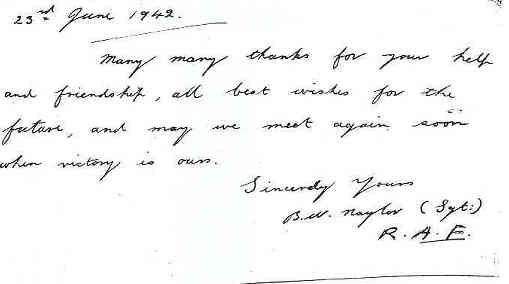 23rd June 1942.
Many many thanks for your help
and friendship, all best wishes for the
future, and may we meet again soon
when victory is ours.
Sincerely Yours
B.W. Naylor (Sgt:)
R.A.F.